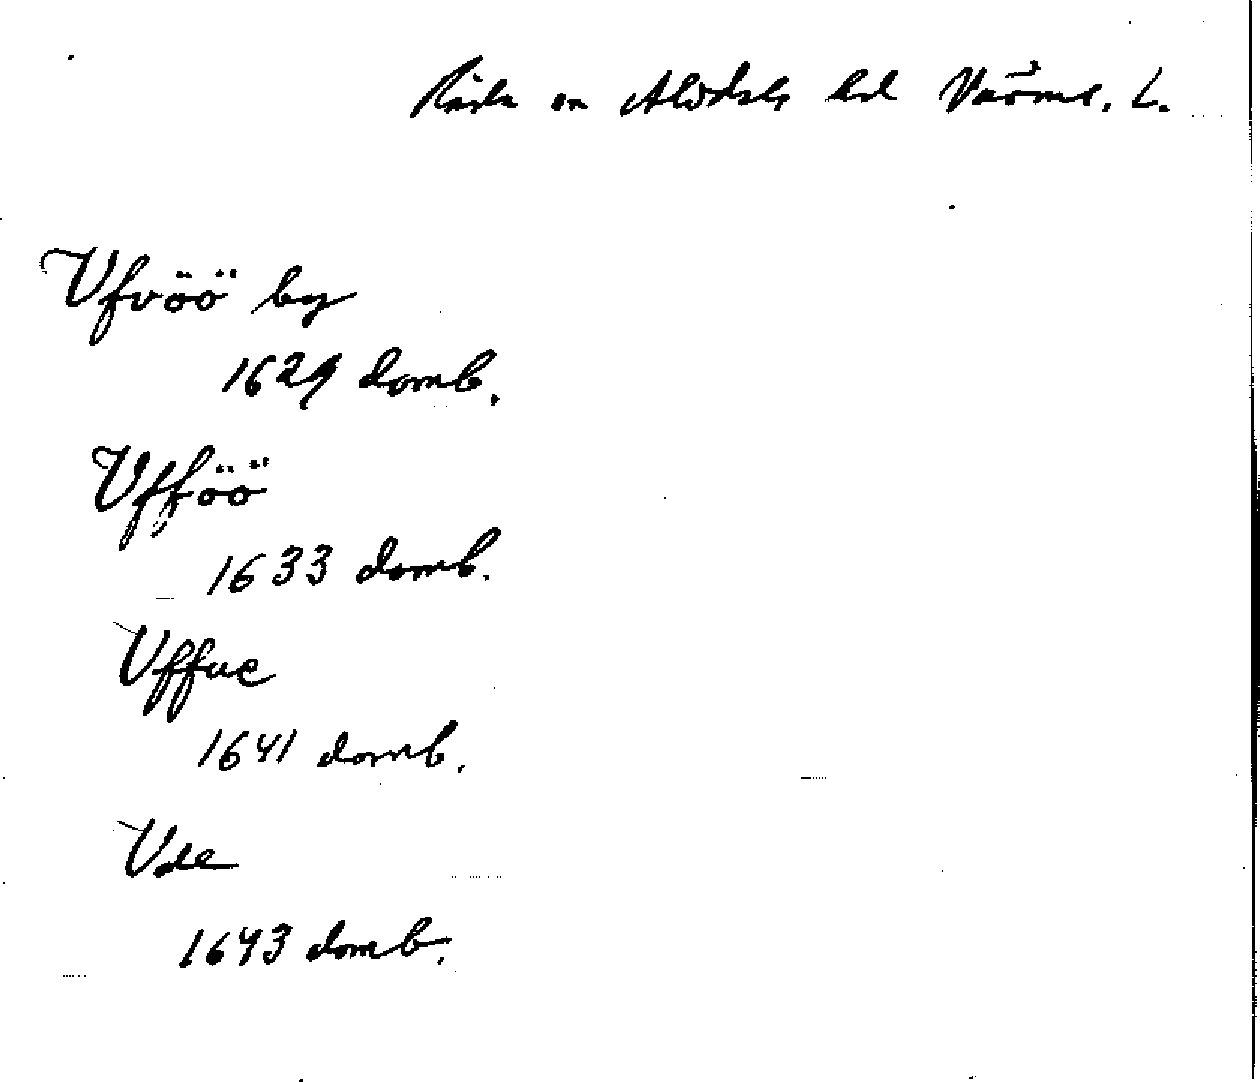 Räda sn Älvdals hd Värml. L.
Vfvöö by
1629 domb.
Vfföö
1633 domb.
Vffue
1641 domb.
Vde
1643 domb.